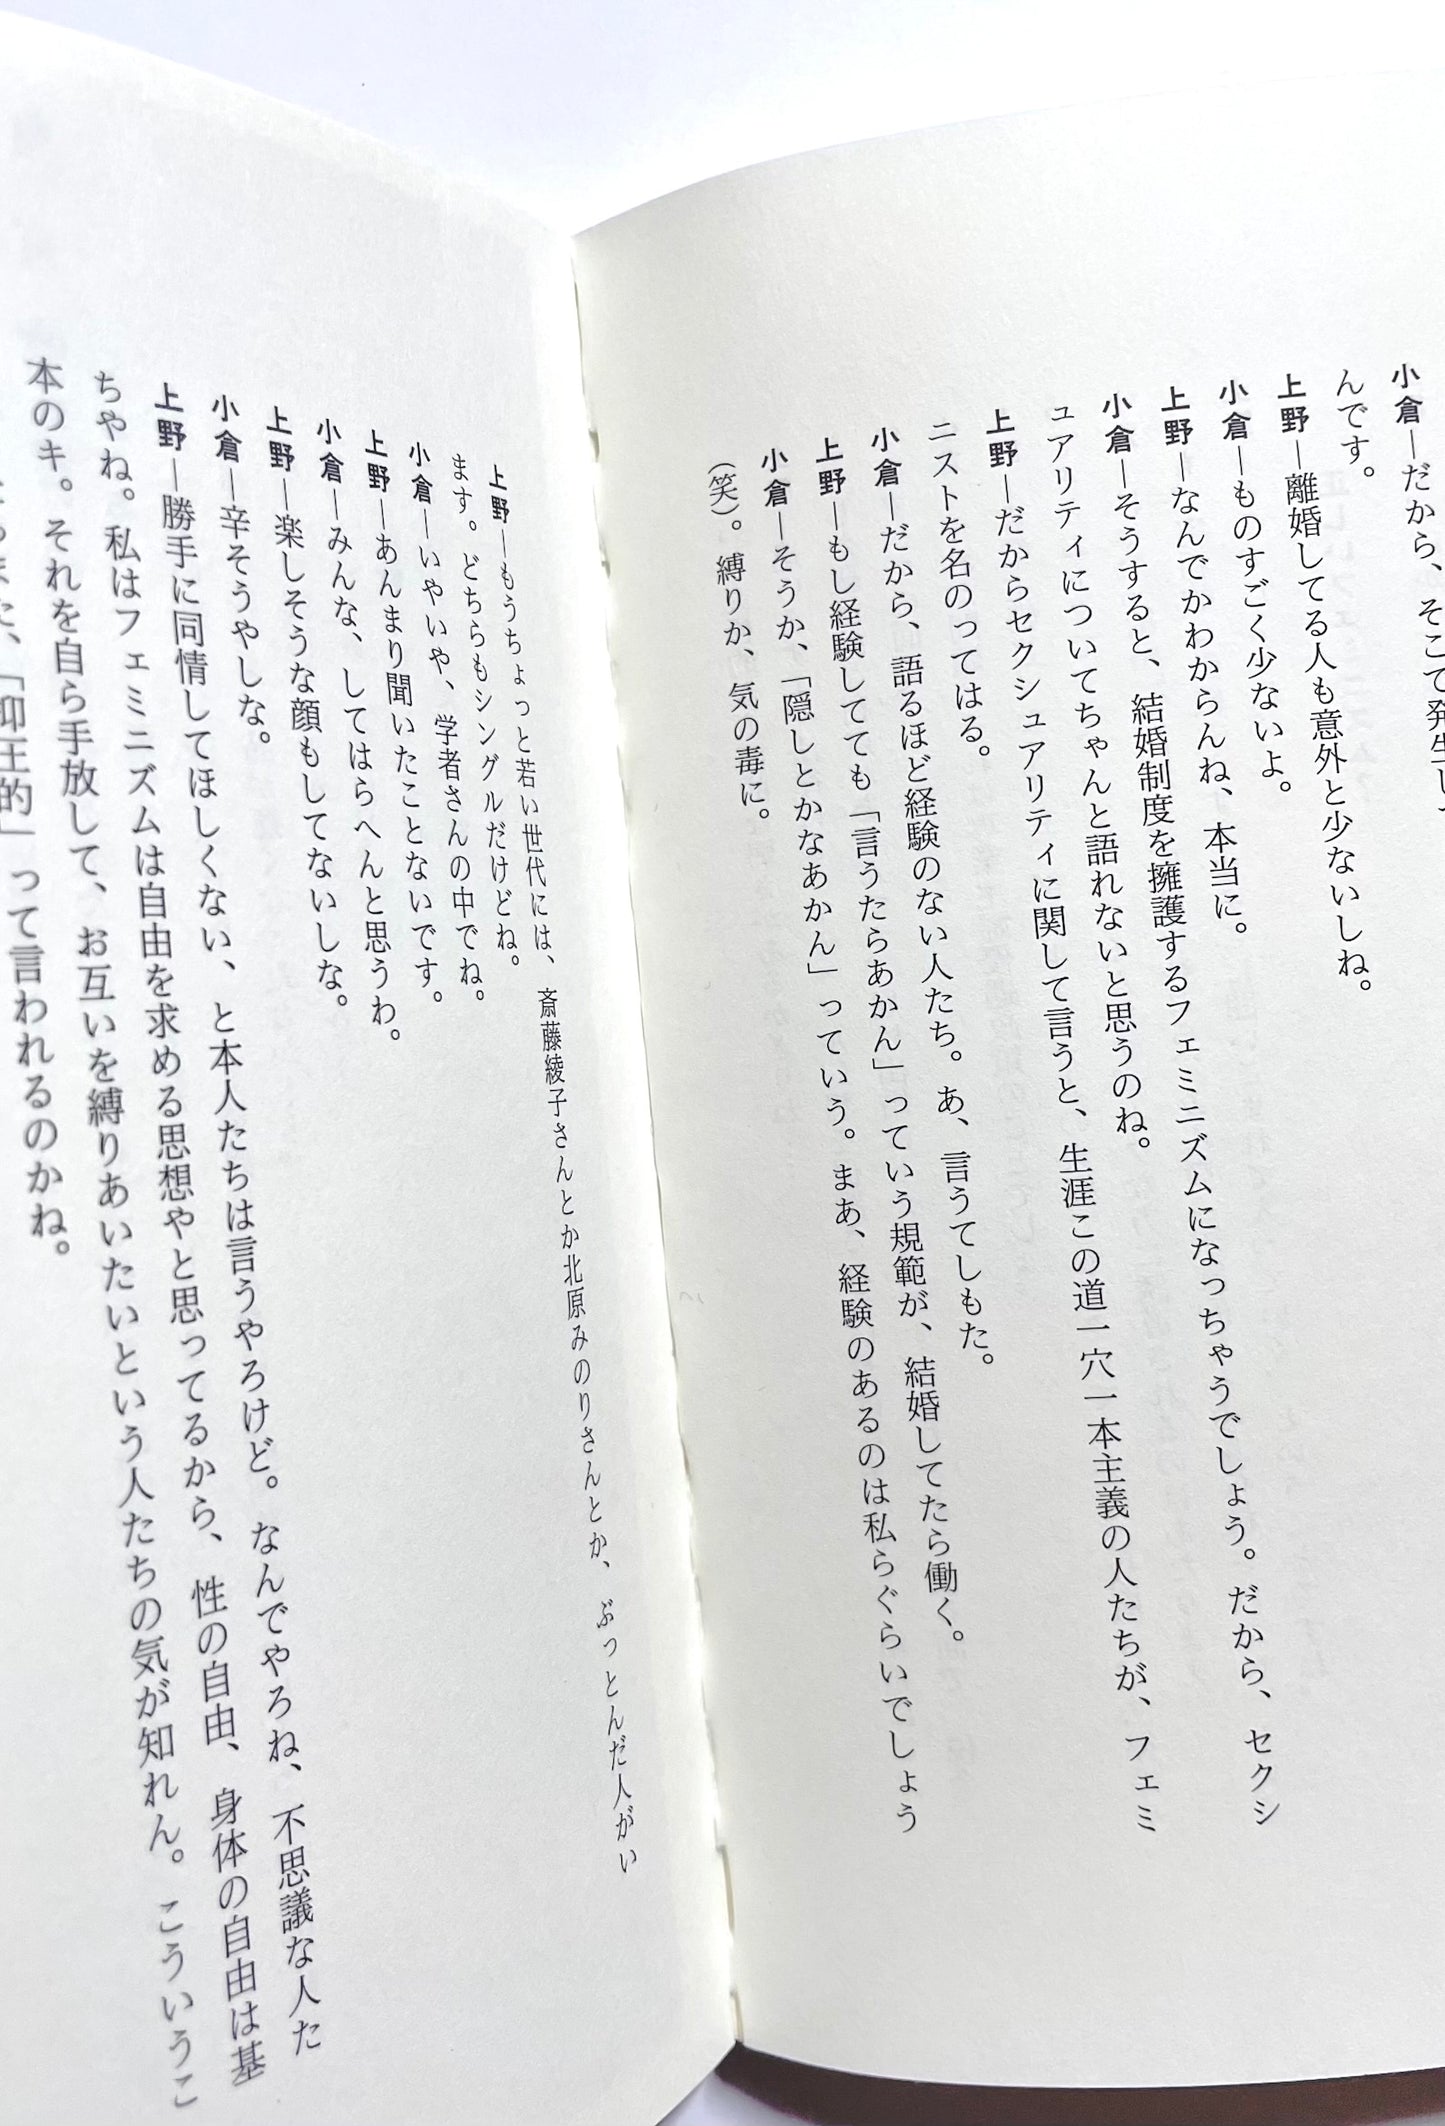 小倉―だから、そこで発生し
んです。
上野―離婚してる人も意外と少ないしね。
小倉―ものすごく少ないよ。
上野―なんでかわからんね、本当に。
小倉―そうすると、結婚制度を擁護するフェミニズムになっちゃうでしょう。だから、セクシ
ュアリティについてちゃんと語れないと思うのね。
上野―だからセクシュアリティに関して言うと、生涯この道一穴一本主義の人たちが、フェミ
ニストを名のってはる。
小倉―だから、語るほど経験のない人たち。あ、言うてしもた。
上野―もし経験してても「言うたらあかん」っていう規範が、結婚してたら働く。
小倉―そうか、「隠しとかなあかん」っていう。まあ、経験のあるのは私らぐらいでしょう
(笑)。縛りか、気の毒に。
上野―もうちょっと若い世代には、斎藤綾子さんとか北原みのりさんとか、ぶっとんだ人がい
ます。どちらもシングルだけどね。
小倉―いやいや、学者さんの中でね。
上野―あんまり聞いたことないです。
小倉―みんな、してはらへんと思うわ。
上野―楽しそうな顔もしてないしな。
小倉―辛そうやしな。
上野―勝手に同情してほしくない、と本人たちは言うやろけど。なんでやろね、不思議な人た
ちやね。私はフェミニズムは自由を求める思想やと思ってるから、性の自由、身体の自由は基
本のキ。それを自ら手放して、お互いを縛りあいたいという人たちの気が知れん。こういうこ
また、「抑圧的」って言われるのかね。